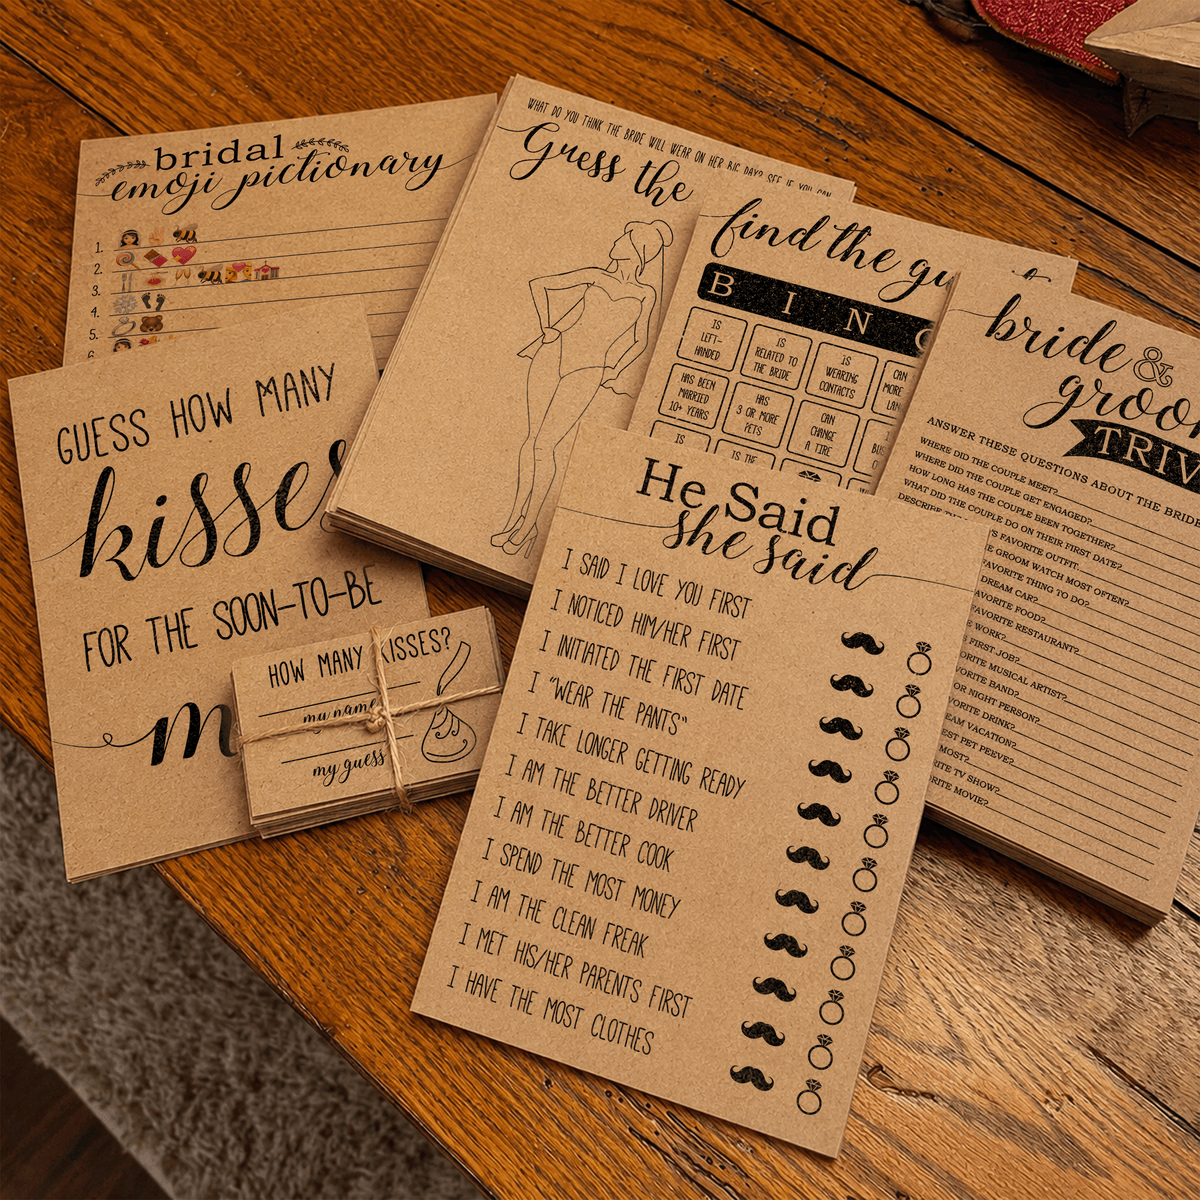 bridal
emoji pictionary
1.
2.
3.
4.
5.
6.
WHAT DO YOU THINK THE BRIDE WILL WEAR ON HER BIG DAY? SEE IF YOU CAN
Guess the
find the gu
B I N G
IS LEFT-HANDED
IS RELATED TO THE BRIDE
IS WEARING CONTACTS
CAN
MORE
LAN
HAS BEEN MARRIED 10+ YEARS
HAS 3 OR MORE PETS
CAN CHANGE A TIRE
IS
IS THE
bride &
groo
TRIV
ANSWER THESE QUESTIONS ABOUT THE BRIDE
WHERE DID THE COUPLE MEET?
WHERE DID THE COUPLE GET ENGAGED?
HOW LONG HAS THE COUPLE BEEN TOGETHER?
WHAT DID THE COUPLE DO ON THEIR FIRST DATE?
DESCRIBE
'S FAVORITE OUTFIT
E GROOM WATCH MOST OFTEN?
FAVORITE THING TO DO?
DREAM CAR?
AVORITE FOOD?
AVORITE RESTAURANT?
E WORK?
FIRST JOB?
ORITE MUSICAL ARTIST?
VORITE BAND?
OR NIGHT PERSON?
VORITE DRINK?
EAM VACATION?
EST PET PEEVE?
MOST?
RITE TV SHOW?
RITE MOVIE?
GUESS HOW MANY
kisses
FOR THE SOON-TO-BE
m
HOW MANY KISSES?
my name
my guess
He Said
she said
I SAID I LOVE YOU FIRST
I NOTICED HIM/HER FIRST
I INITIATED THE FIRST DATE
I "WEAR THE PANTS"
I TAKE LONGER GETTING READY
I AM THE BETTER DRIVER
I AM THE BETTER COOK
I SPEND THE MOST MONEY
I AM THE CLEAN FREAK
I MET HIS/HER PARENTS FIRST
I HAVE THE MOST CLOTHES